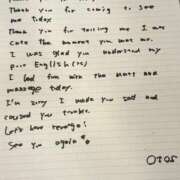 Thank you for coming to see
me today.
Thank you for telling me I was
cute the moment you met me.
I was glad you understand my
poor English (to)
I had fun with the mutt and
massage today.
I'm sorry I made you sad and
caused you trouble.
Let's have revenge!
See you again